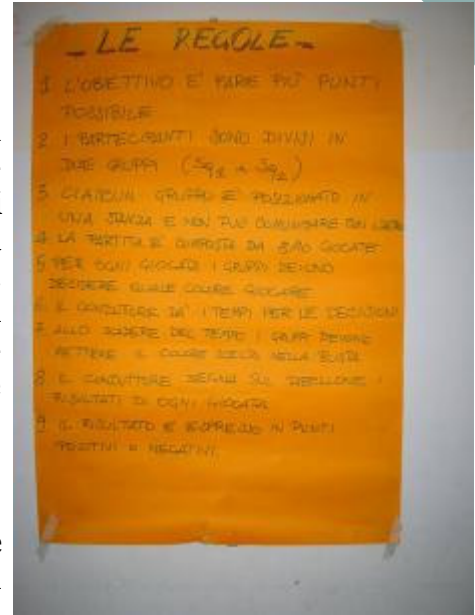 - LE REGOLE -
1 L'OBIETTIVO E' FARE PIU' PUNTI
POSSIBILE
2 I PARTECIPANTI SONO DIVISI IN
DUE GRUPPI (Sq1 Sq2)
3 CIASCUN GRUPPO E' POSIZIONATO IN
UNA STANZA E NON PUO' COMUNICARE CON
4 LA PARTITA E' COMPOSTA DA GIOCATE
5 PER OGNI GIOCATA I GRUPPI DEVONO
DECIDERE QUALE COLORE GIOCARE
6 IL CONDUTTORE DA' I TEMPI PER LE DECISIONI
7 ALLO SCADERE DEL TEMPO I GRUPPI DEVONO
METTERE IL COLORE SCELTO NELLA BUSTA
8 IL CONDUTTORE SEGNA SUL TABELLONE I
RISULTATI DI OGNI GIOCATA
9 IL RISULTATO E' ESPRESSO IN PUNTI
POSITIVI O NEGATIVI